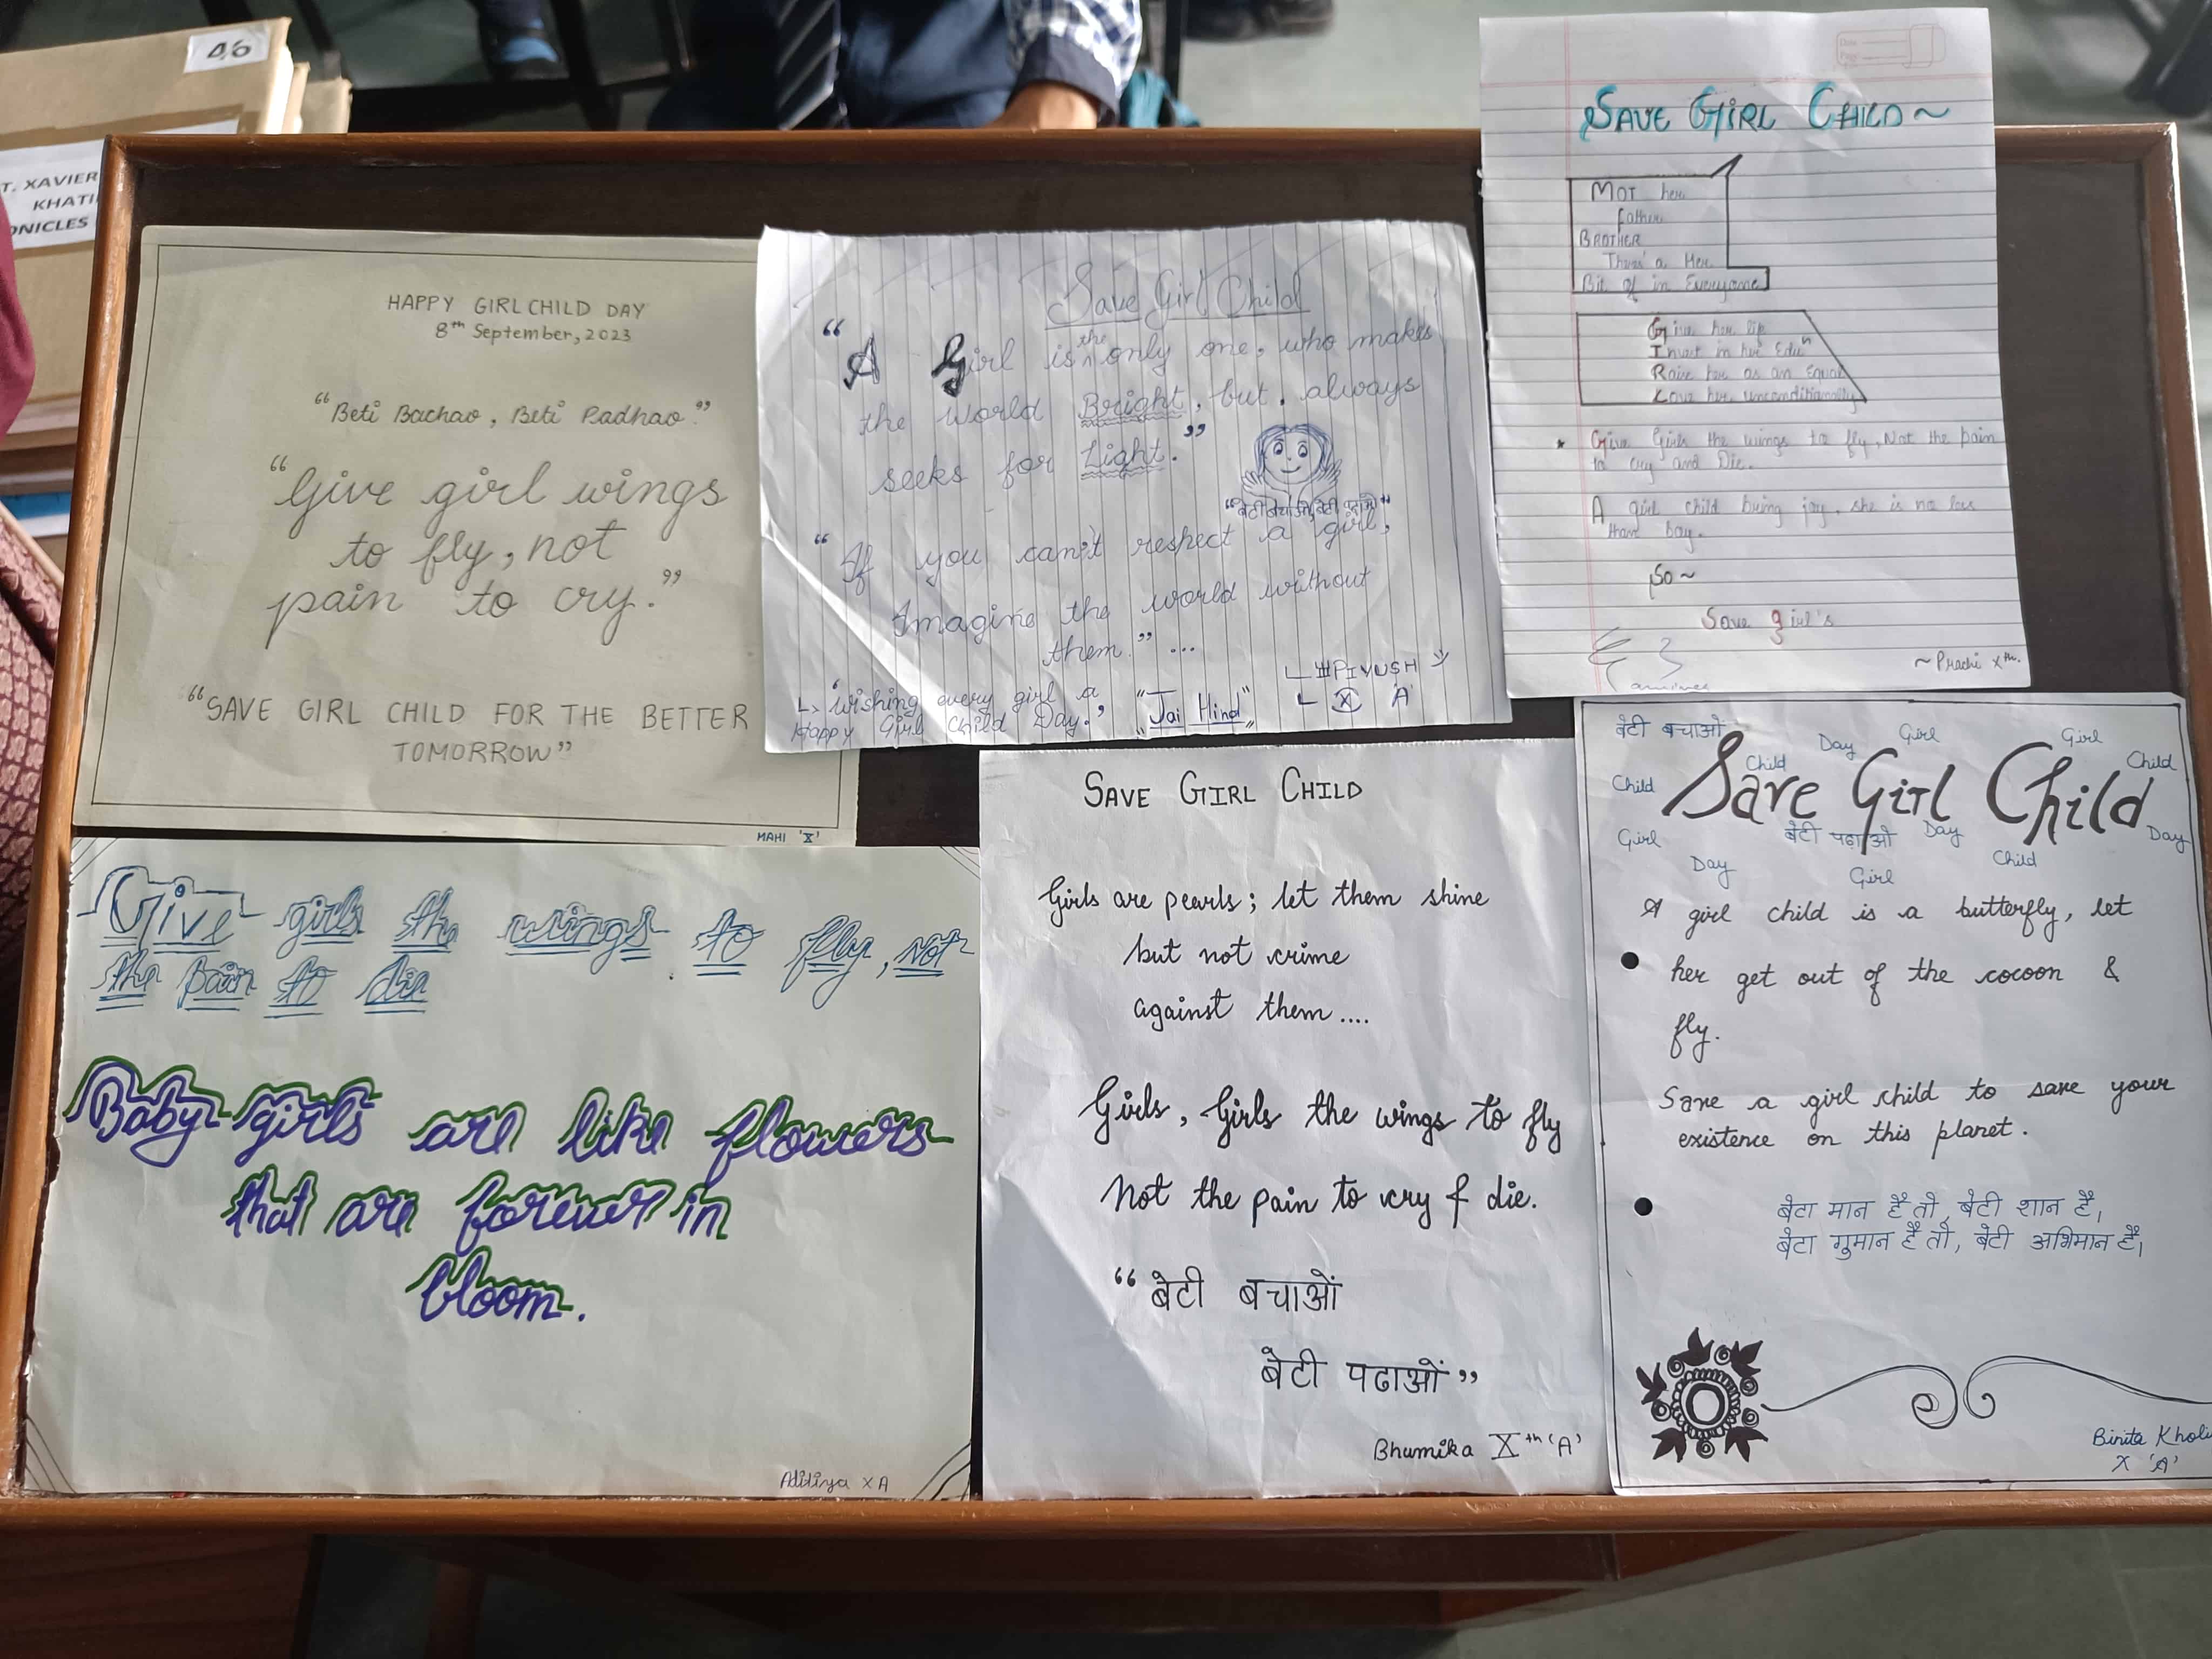 46
T. XAVIER
KHATI
ONICLES
HAPPY GIRL CHILD DAY
8th September, 2023
"Beti Bachao, Beti Padhao"
"Give girl wings
to fly, not
pain to cry."
"SAVE GIRL CHILD FOR THE BETTER
TOMORROW"
MAHI 'X'
Save Girl Child
"A Girl is the only one, who makes
the world Bright, but, always
seeks for Light."
"बेटी बचाओ, बेटी पढ़ाओ"
"If you can't respect a girl,
Imagine the world without
them." ...
PIYUSH
X 'A'
'Wishing every girl a
Happy Girl Child Day.'
"Jai Hind"
SAVE GIRL CHILD~
MOT her
father
BROTHER
There' a Her
Bit of in Everyone
Give her life
Invest in her Edun
Raise her as an Equal
Love her unconditionally
* Give Girls the wings to fly, Not the pain
to cry and Die.
A girl child bring joy, she is no less
than boy.
So~
Save girl's
~Prachi Xth.
Give girls the wings to fly, Not
the pain to die
Baby girls are like flowers
that are forever in
bloom.
Aditiya X A
SAVE GIRL CHILD
Girls are pearls; let them shine
but not crime
against them....
Girls, Girls the wings to fly
Not the pain to cry & die.
"बेटी बचाओं
बेटी पढाओं"
Bhumika Xth 'A'
बेटी बचाओ
Day Girl Girl
Child Child Child
Save Girl Child
Girl बेटी पढ़ाओ Day Day
Day Girl Child
A girl child is a butterfly, let
her get out of the cocoon &
fly.
Save a girl child to save your
existence on this planet.
बेटा मान है तो, बेटी शान है।
बेटा गुमान है तो, बेटी अभिमान है।
Binita Kholi
X 'A'